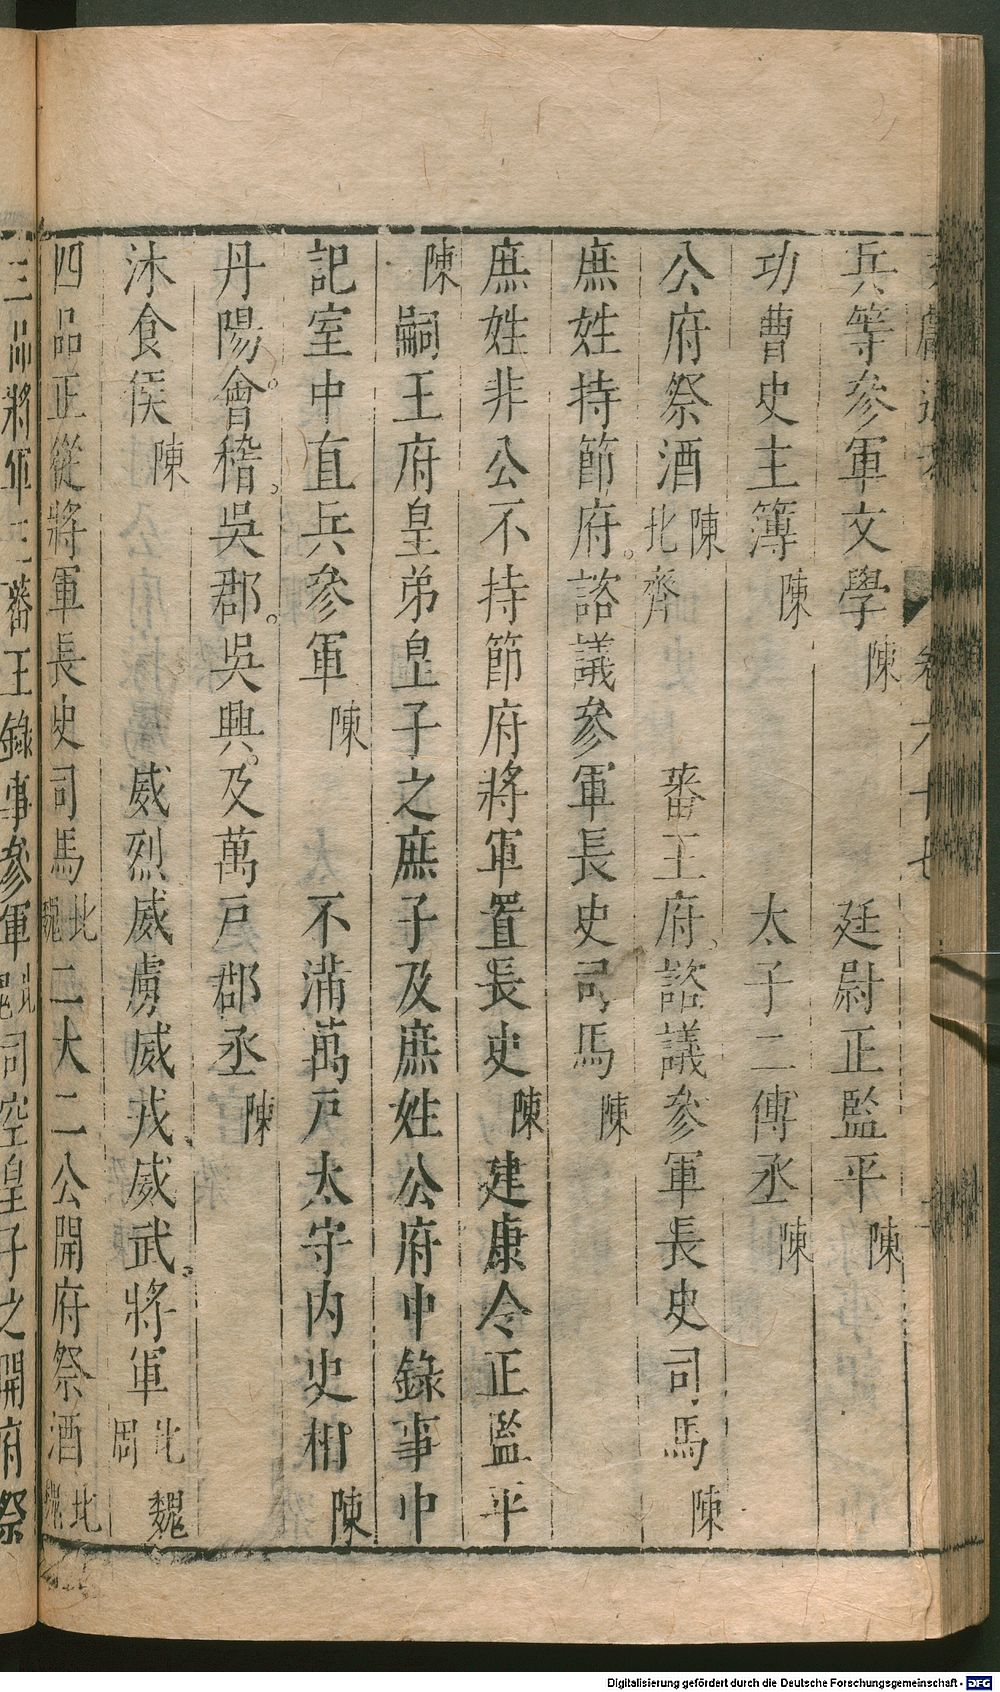 兵等參軍文學陳 廷尉正監平陳
功曹史主簿陳 太子二傅丞陳
公府祭酒陳北齊 蕃王府諮議參軍長史司馬陳
庶姓持節府諮議參軍長史司馬陳
庶姓非公不持節府將軍置長史陳建康令正監平
陳嗣王府皇弟皇子之庶子及庶姓公府中錄事中
記室中直兵參軍陳 不滿萬戶太守內史相陳
丹陽會稽吳郡吳興及萬戶郡丞陳
沐食侯陳 威烈威虜威戎威武將軍北魏周
四品正從將軍長史司馬北魏二大二公開府祭酒北魏
三品將軍三蕃王錄事參軍北魏司空皇子之開府祭
卷六十七
Digitalisierung gefördert durch die Deutsche Forschungsgemeinschaft - DFG